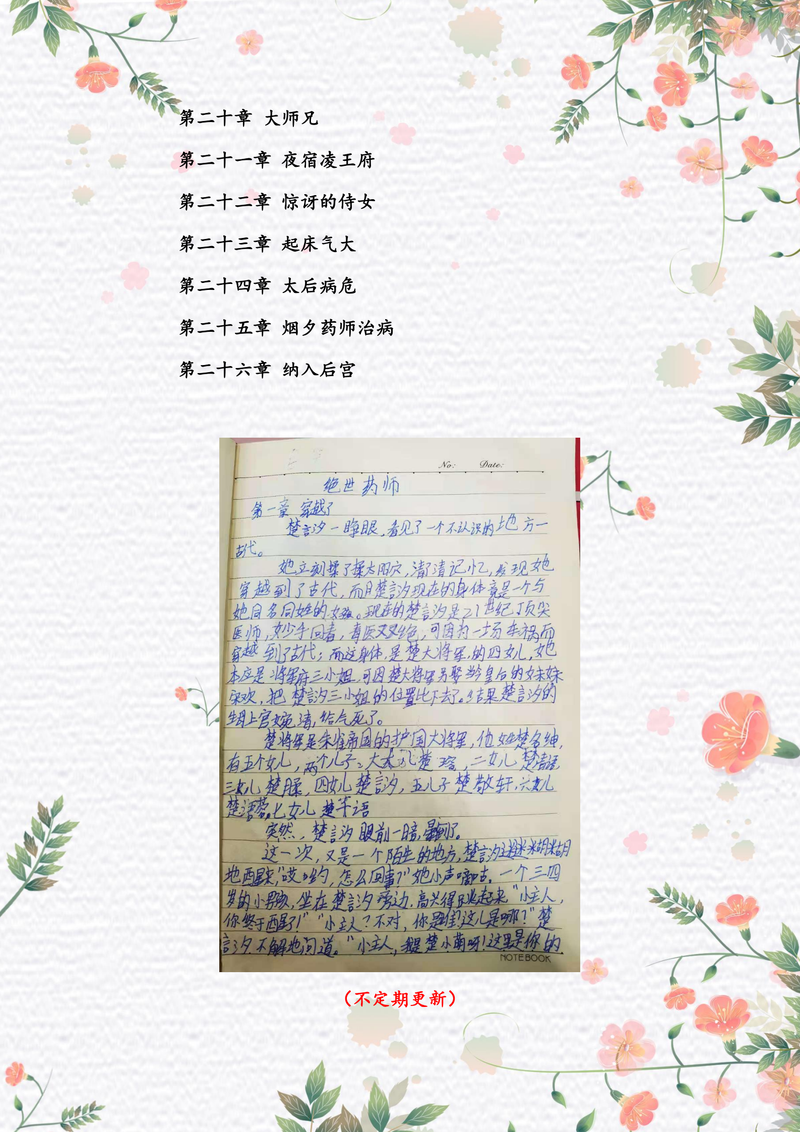 第二十章 大师兄
第二十一章 夜宿凌王府
第二十二章 惊讶的侍女
第二十三章 起床气大
第二十四章 太后病危
第二十五章 烟夕药师治病
第二十六章 纳入后宫
No: Date:
绝世药师
第一章 穿越了
楚言汐一睁眼，看见了一个不认识的地方一
古代。
她立刻揉了揉太阳穴，清清记忆，发现她
穿越到了古代，而且楚言汐现在的身体竟是一个与
她同名同姓的女孩。现在的楚言汐是21世纪顶尖
医师，妙手回春，毒医双绝，可因为一场车祸而
穿越到了古代；而这身体，是楚大将军的四女儿，她
本应是将军府三小姐，可因楚大将军另娶皇后的妹妹
宋欢，把楚言汐三小姐的位置比下去了。结果楚言汐的
生母上官婉清，给气死了。
楚将军是朱雀帝国的护国大将军，他姓楚名绅，
有五个女儿，两个儿子：大女儿楚瑢，二女儿楚
三女儿楚，四女儿楚言汐，五儿子楚敬轩，六女儿
楚，七女儿楚千语
突然，楚言汐眼前一暗，晕倒了。
这一次，又是一个陌生的地方，楚言汐迷迷糊糊
地醒来，"哎哟，怎么回事？"她小声嘟囔。一个三四
岁的小男孩，坐在楚言汐旁边，高兴得跳起来，"小主人，
你终于醒了！""小主人？不对，你是谁？这儿是哪？"楚
言汐不解地问道。"小主人，我是楚小萌呀！这里是你的
NOTEBOOK
（不定期更新）